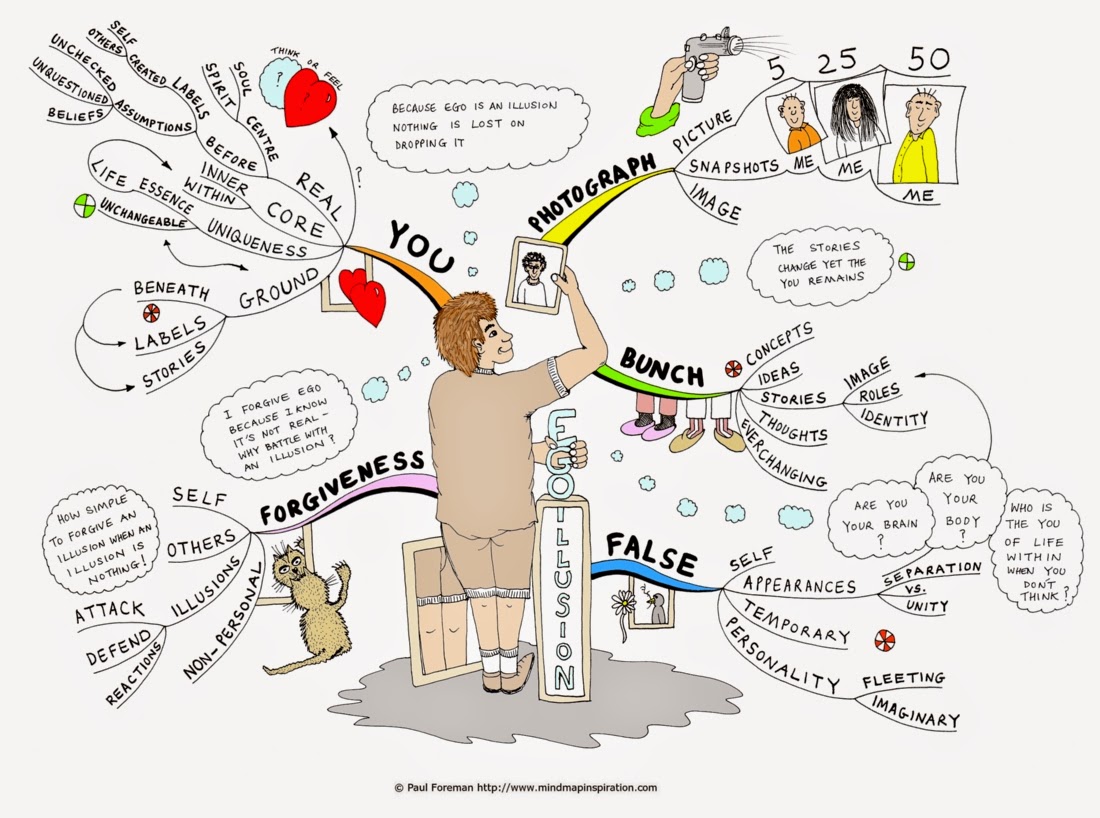 SELF
OTHERS
CREATED
LABELS
UNCHECKED
UNQUESTIONED
ASSUMPTIONS
BELIEFS
SOUL
SPIRIT
CENTRE
BEFORE
INNER
WITHIN
REAL
CORE
LIFE ESSENCE
UNIQUENESS
UNCHANGEABLE
GROUND
BENEATH
LABELS
STORIES
THINK OR FEEL
?
?
YOU
BECAUSE EGO IS AN ILLUSION
NOTHING IS LOST ON
DROPPING IT
PHOTOGRAPH
PICTURE
SNAPSHOTS
IMAGE
5 25 50
ME
ME
ME
THE STORIES
CHANGE YET THE
YOU REMAINS
BUNCH
CONCEPTS
IDEAS
STORIES
THOUGHTS
EVERCHANGING
IMAGE
ROLES
IDENTITY
I FORGIVE EGO
BECAUSE I KNOW
IT'S NOT REAL -
WHY BATTLE WITH
AN ILLUSION?
FORGIVENESS
SELF
OTHERS
ILLUSIONS
NON-PERSONAL
ATTACK
DEFEND
REACTIONS
HOW SIMPLE
TO FORGIVE AN
ILLUSION WHEN AN
ILLUSION IS
NOTHING!
EGO
ILLUSION
FALSE
SELF
APPEARANCES
TEMPORARY
PERSONALITY
SEPARATION
VS.
UNITY
FLEETING
IMAGINARY
ARE YOU
YOUR BRAIN
?
ARE YOU
YOUR
BODY
?
WHO IS
THE YOU
OF LIFE
WITHIN
WHEN YOU
DON'T
THINK?
© Paul Foreman http://www.mindmapinspiration.com